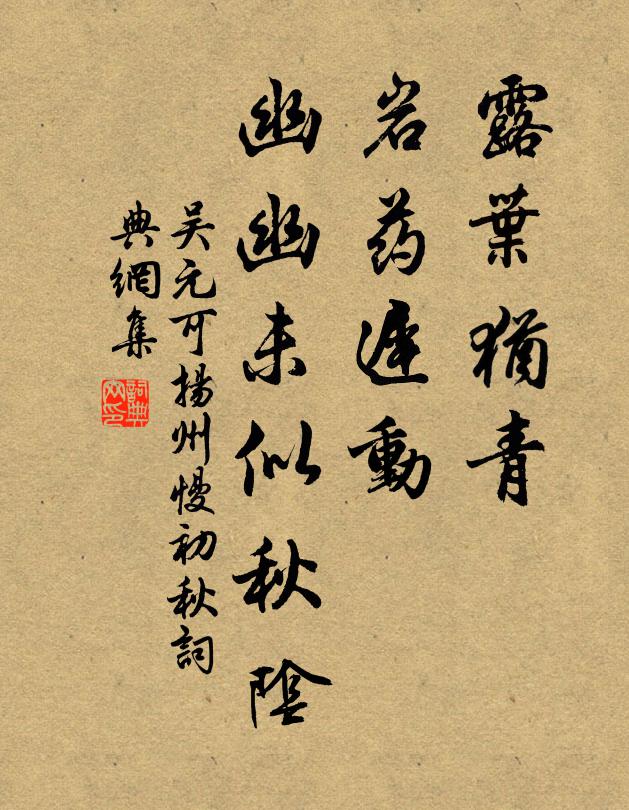 露葉猶青
岩药遲動
幽幽未似秋陰
吴元可揚州慢初秋詞
典網集
詞典
网印